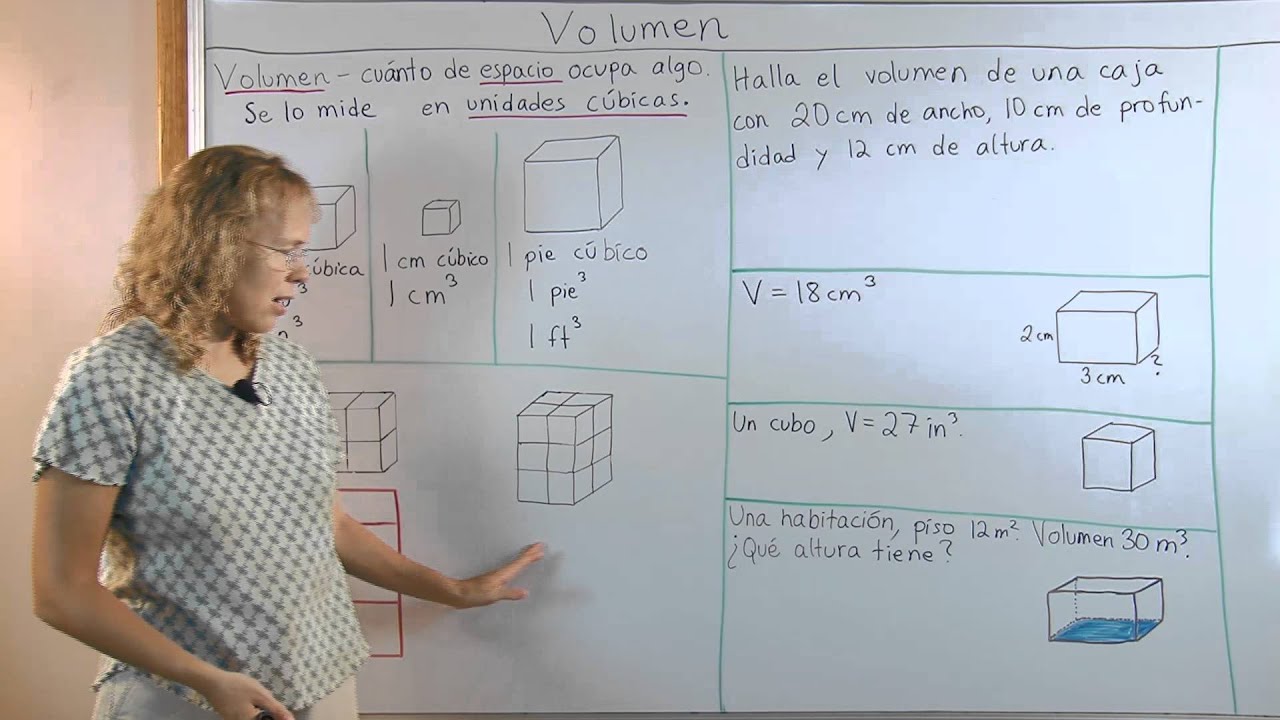 Volumen
Volumen - cuánto de espacio ocupa algo.
Se lo mide en unidades cúbicas.
cúbica
3
3
1 cm cúbico
1 cm³
1 pie cúbico
1 pie³
1 ft³
Halla el volumen de una caja
con 20 cm de ancho, 10 cm de profun-
didad y 12 cm de altura.
V = 18 cm³
2 cm
3 cm
?
Un cubo, V = 27 in³.
Una habitación, piso 12 m². Volumen 30 m³.
¿Qué altura tiene?